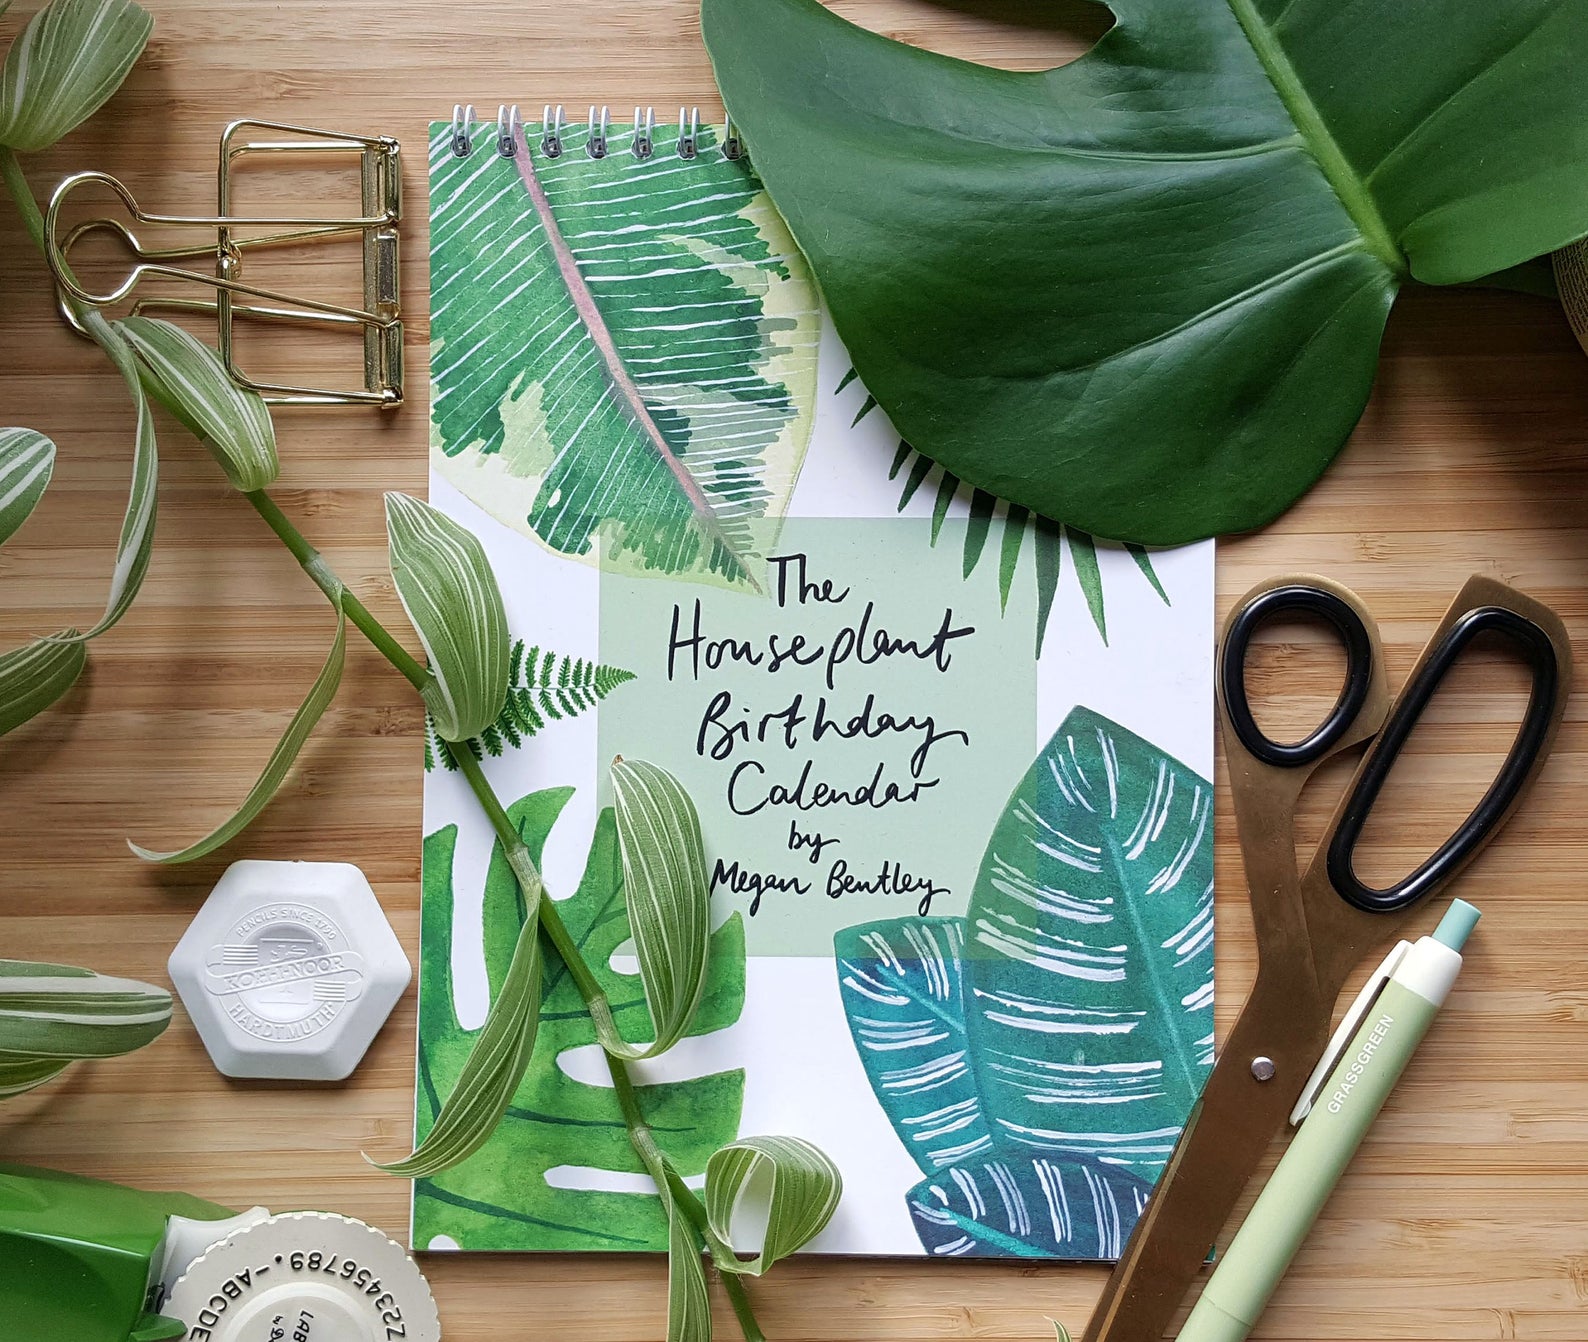 The
Houseplant
Birthday
Calendar
by
Megan Bentley
PENCILS SINCE 1790
KOH-I-NOOR
HARDTMUTH
GRASSGREEN
Z23456789.-ABCDE